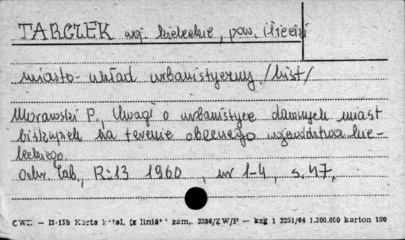 TARCZEK woj. kieleckie, pow. iłżecki
miasto - układ urbanistyczny /hist/
Morawski P., Uwagi o urbanistyce dawnych miast
biskupich na terenie obecnego województwa kie-
leckiego.
Ochr. Zab., R: 13 1960, nr 1-4, s. 47,
Karta zam. 2286/ZW/P — kzg 1 2251/64 1.200.000 karton 180